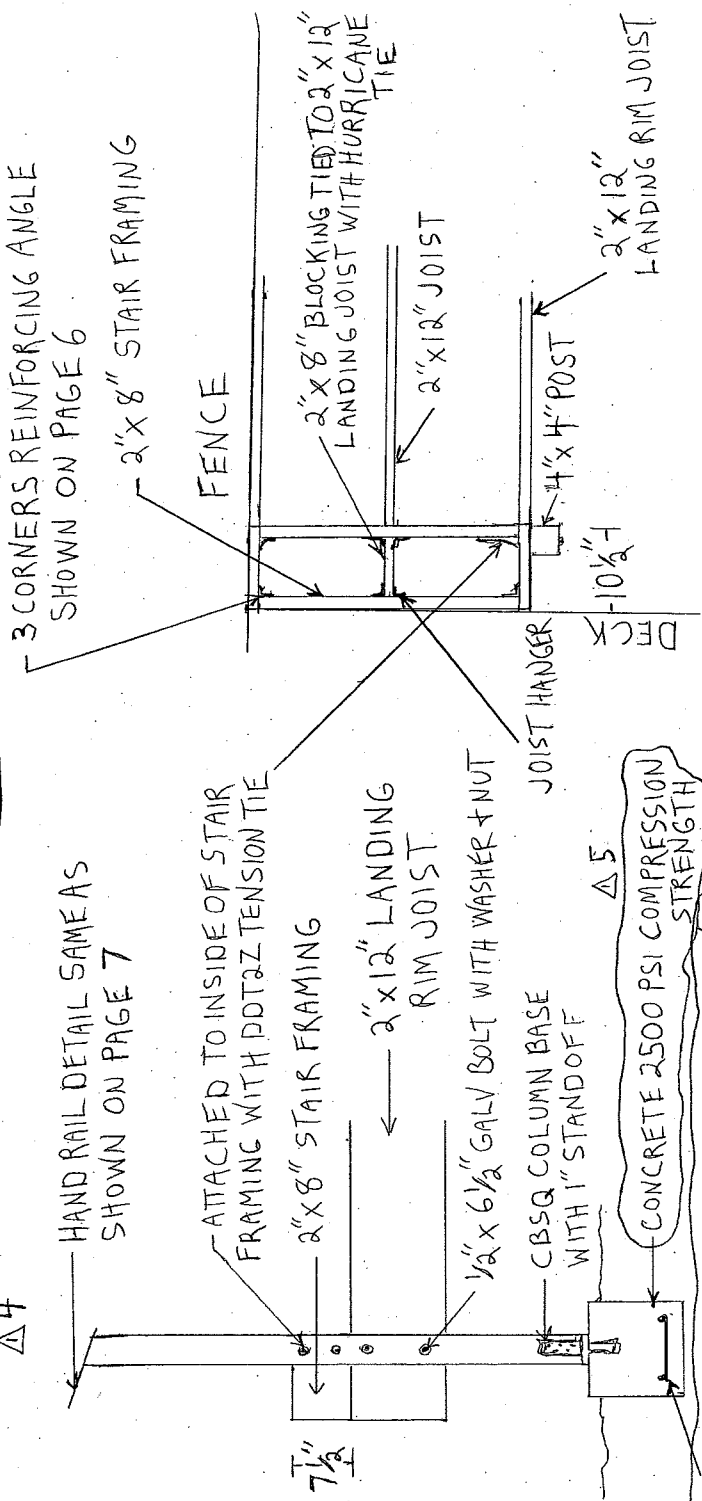 △4
HANDRAIL DETAIL SAME AS
SHOWN ON PAGE 7
ATTACHED TO INSIDE OF STAIR
FRAMING WITH DDT2Z TENSION TIE
2"x8" STAIR FRAMING
7 1/2"
2"x12" LANDING
RIM JOIST
1/2"x6 1/2" GALV BOLT WITH WASHER + NUT
CBSQ COLUMN BASE
WITH 1" STANDOFF
△5
CONCRETE 2500 PSI COMPRESSION
STRENGTH
3 CORNERS REINFORCING ANGLE
SHOWN ON PAGE 6
2"x8" STAIR FRAMING
FENCE
2"x8" BLOCKING TIED TO 2"x12"
LANDING JOIST WITH HURRICANE
TIE
2"x12" JOIST
4"x4" POST
2"x12"
LANDING RIM JOIST
10 1/2"
DECK
JOIST HANGER